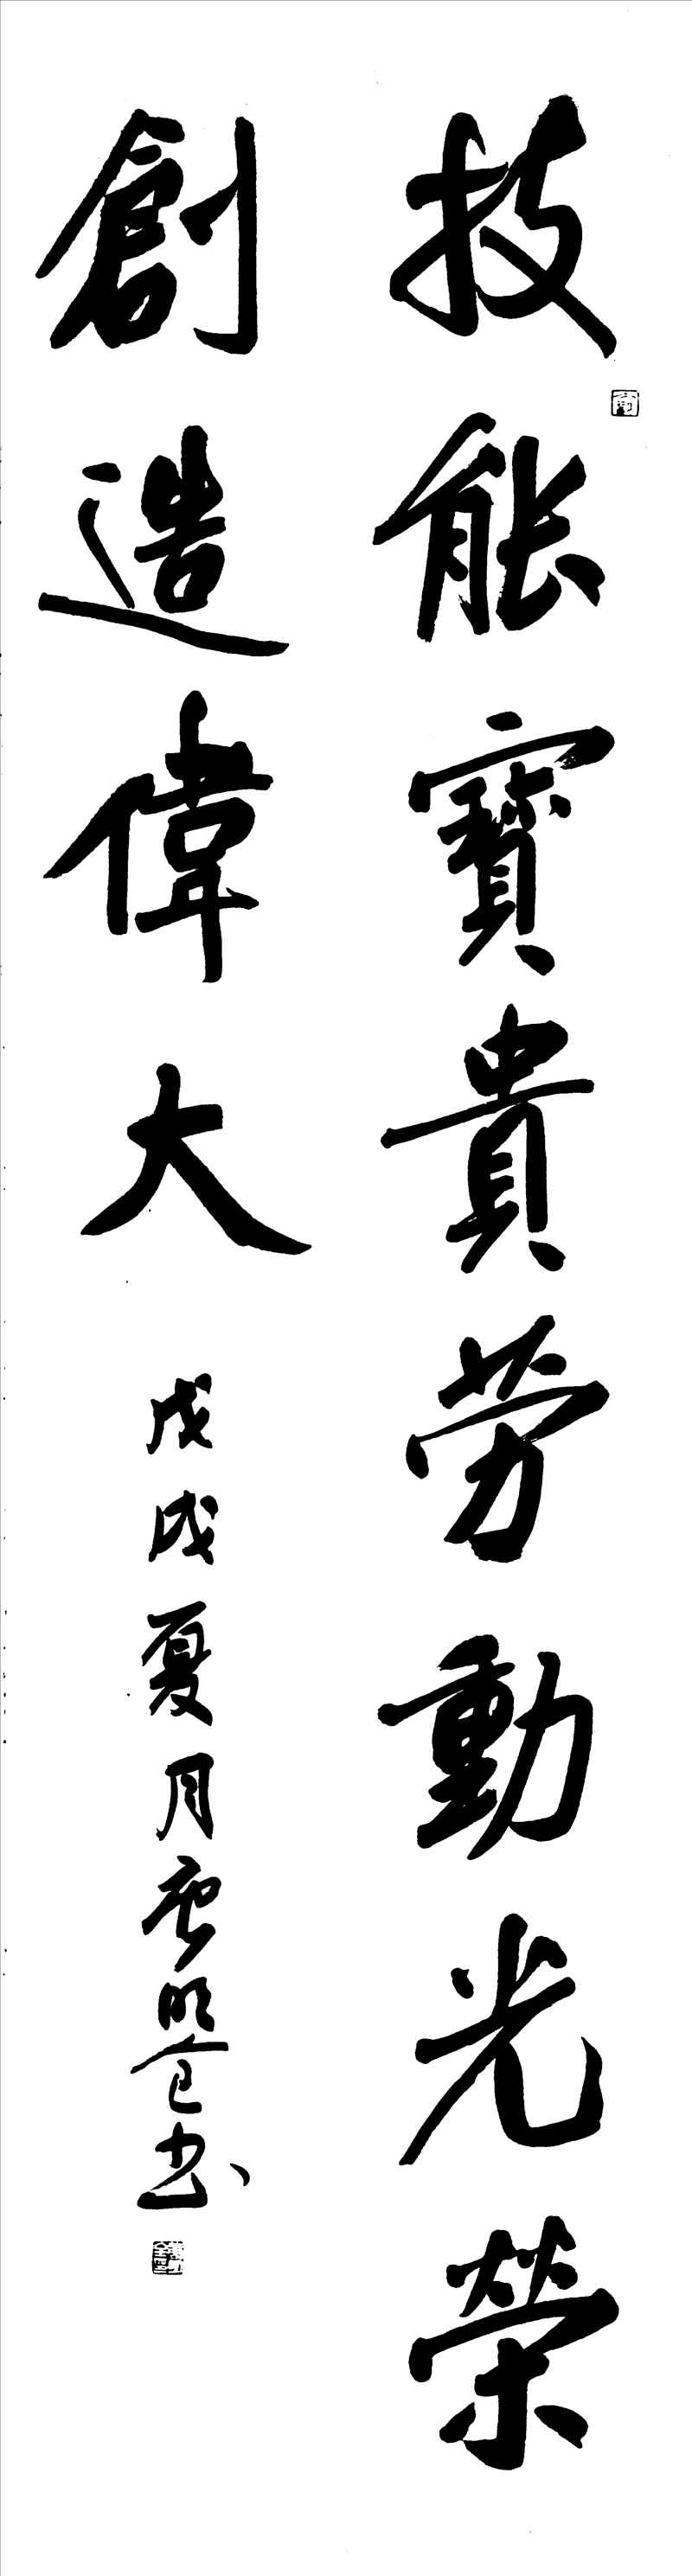 技能寶貴勞動光榮
創造偉大
戊戌夏月
书